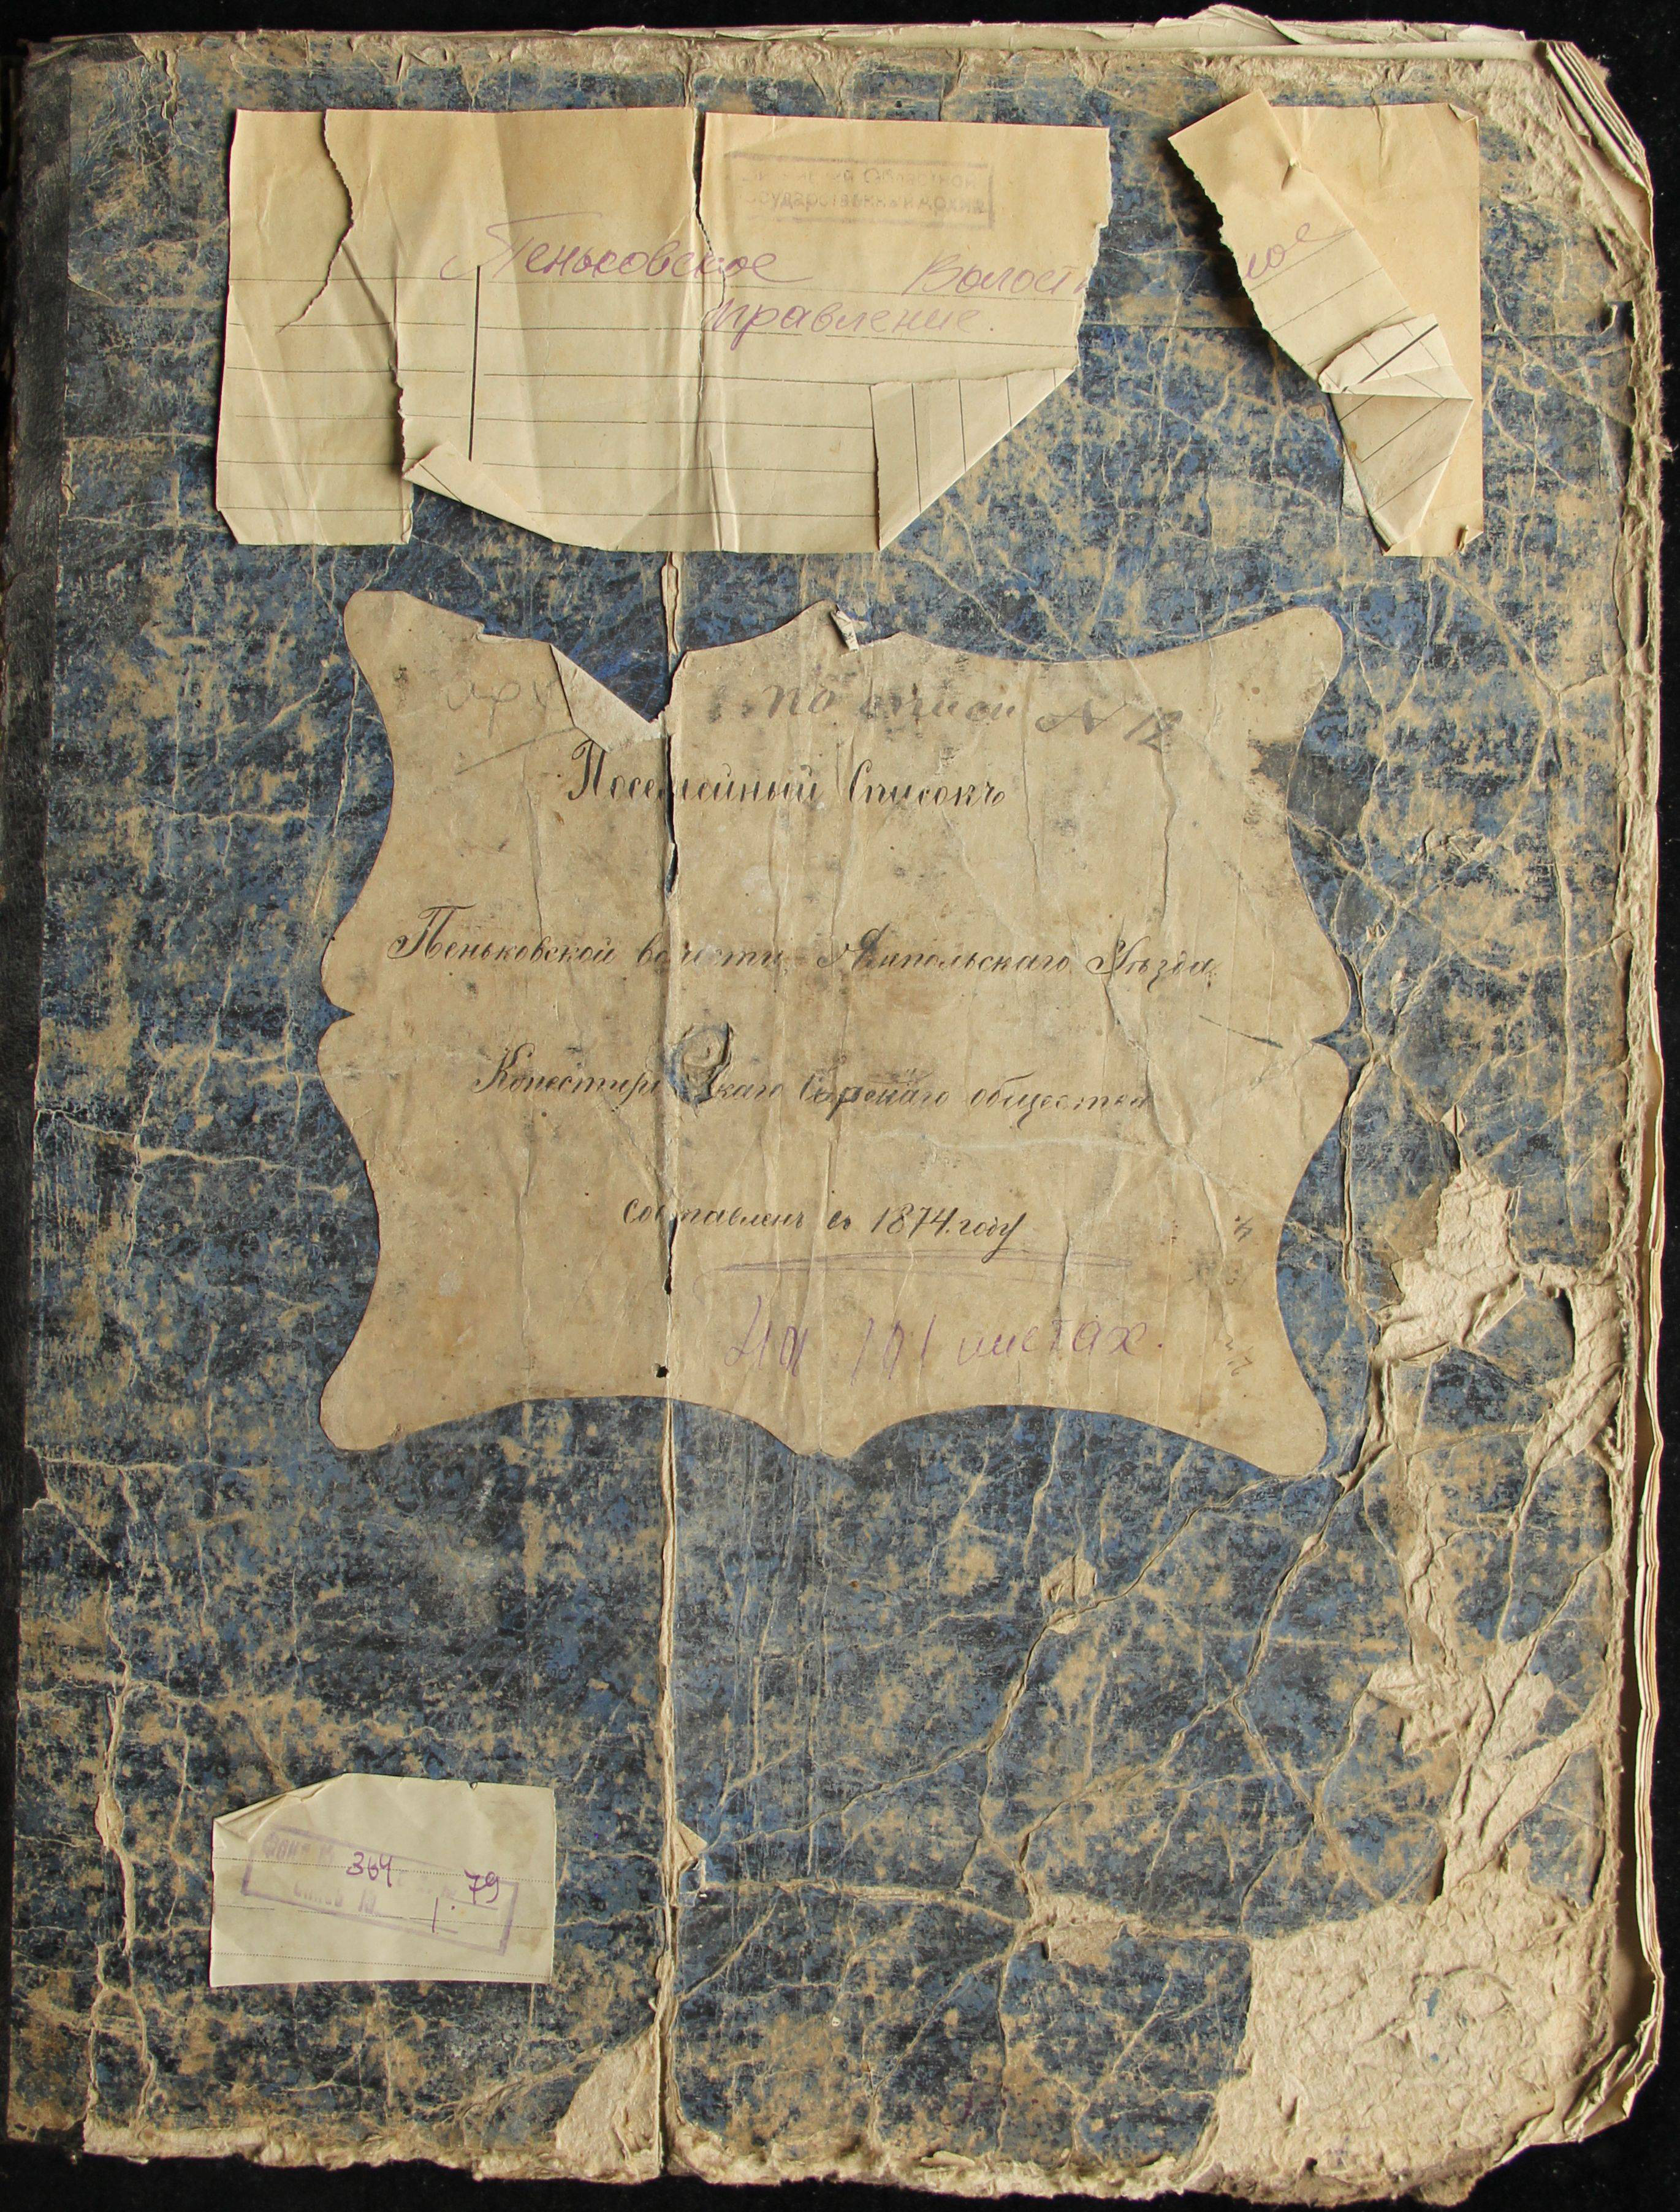 Областной
государственный архив
Пеньковское Волостное
правление.
по описи N 12
Посемейный Списокъ
Пеньковской волости Ямпольскаго Уѣзда
Сельскаго общества
составленъ въ 1874 году
На листах.
Фонд № 364 79
Опись № 1